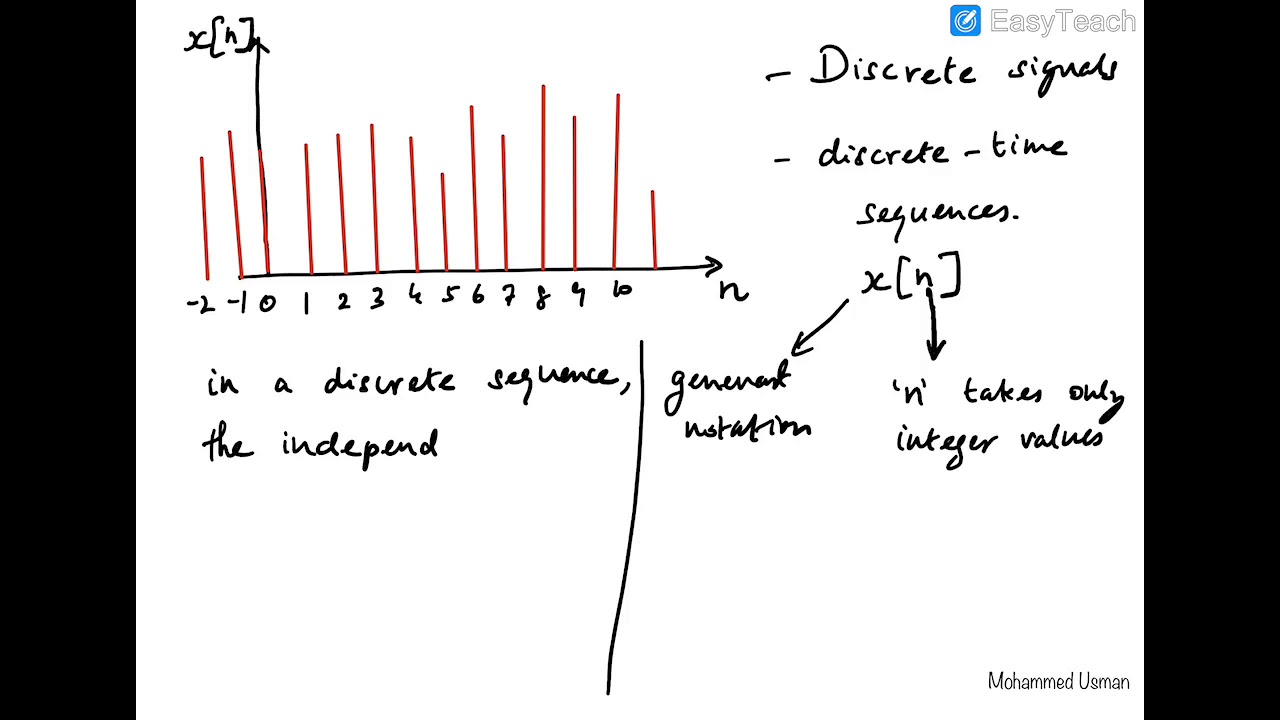 EasyTeach
x[n]
-2 -1 0 1 2 3 4 5 6 7 8 9 10 n
- Discrete signals
- discrete-time
sequences.
x[n]
in a discrete sequence,
the independ
notation
'n' takes only
integer values
Mohammed Usman